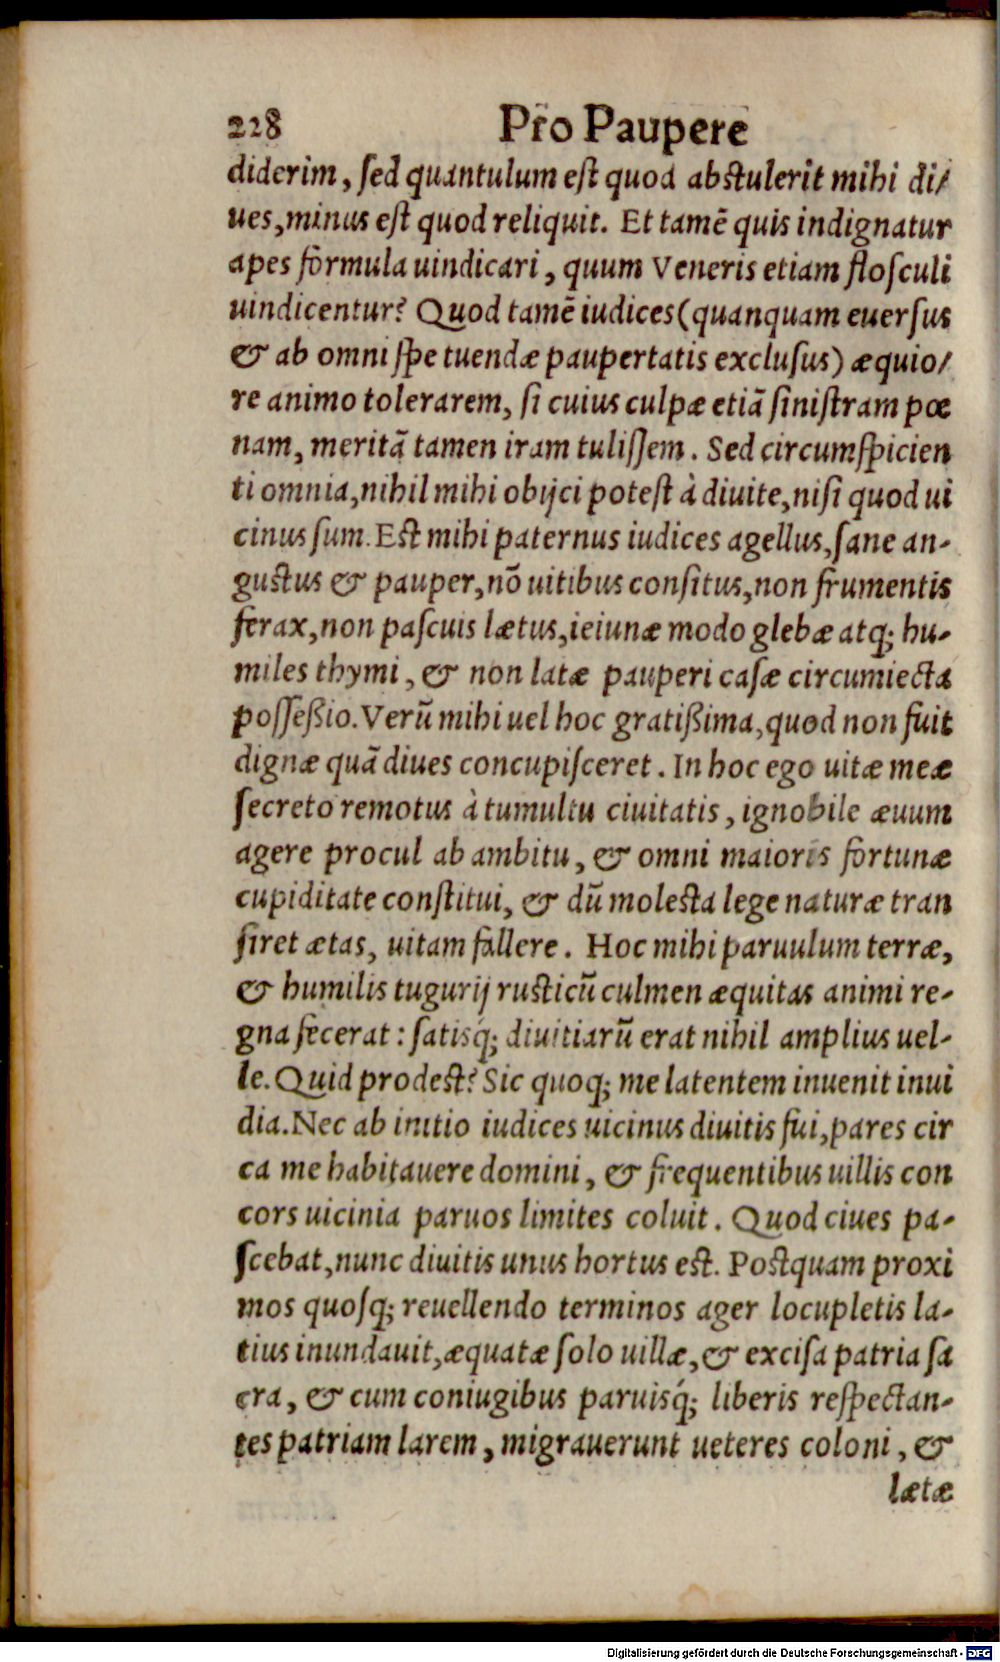 228 Pro Paupere
diderim, sed quantulum est quod abstulerit mihi di/
ues, minus est quod reliquit. Et tamē quis indignatur
apes formula uindicari, quum Veneris etiam flosculi
uindicentur? Quod tamē iudices (quanquam euersus
& ab omni spe tuendæ paupertatis exclusus) æquio/
re animo tolerarem, si cuius culpæ etiā sinistram pœ
nam, meritā tamen iram tulissem. Sed circumspicien
ti omnia, nihil mihi obijci potest à diuite, nisi quod ui
cinus sum. Est mihi paternus iudices agellus, sane an-
gustus & pauper, nō uitibus consitus, non frumentis
ferax, non pascuis lætus, ieiunæ modo glebæ atq; hu-
miles thymi, & non latæ pauperi casæ circumiecta
posseßio. Verū mihi uel hoc gratißima, quod non fuit
dignæ quā diues concupisceret. In hoc ego uitæ meæ
secreto remotus à tumultu ciuitatis, ignobile æuum
agere procul ab ambitu, & omni maioris fortunæ
cupiditate constitui, & dū molesta lege naturæ tran
siret ætas, uitam fallere. Hoc mihi paruulum terræ,
& humilis tugurij rusticū culmen æquitas animi re-
gna fecerat: satisq́; diuitiarū erat nihil amplius uel-
le. Quid prodest? Sic quoq; me latentem inuenit inui
dia. Nec ab initio iudices uicinus diuitis fui, pares cir
ca me habitauere domini, & frequentibus uillis con
cors uicinia paruos limites coluit. Quod ciues pa-
scebat, nunc diuitis unus hortus est. Postquam proxi
mos quosq; reuellendo terminos ager locupletis la-
tius inundauit, æquatæ solo uillæ, & excisa patria sa
cra, & cum coniugibus paruisq́; liberis respectan-
tes patriam larem, migrauerunt ueteres coloni, &
lætæ
Digitalisierung gefördert durch die Deutsche Forschungsgemeinschaft - DFG